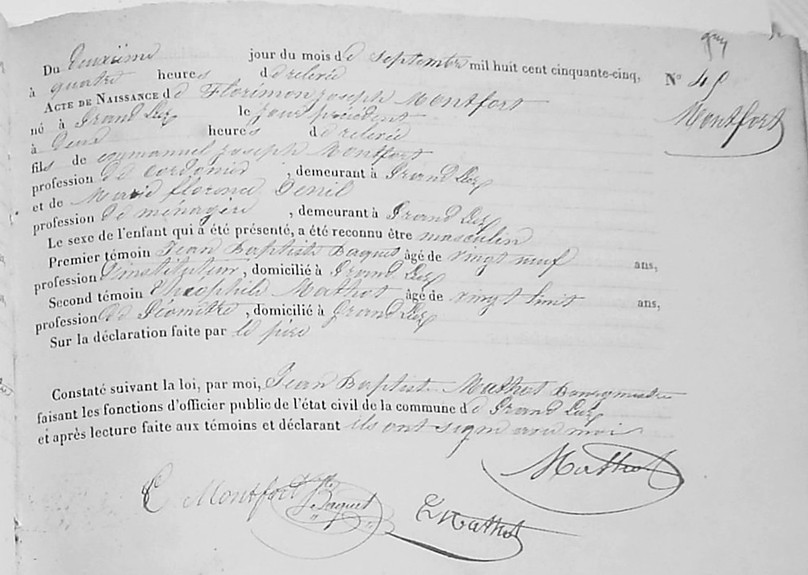 Du deuxième jour du mois de septembre mil huit cent cinquante-cinq, N° 48
à quatre heures de relevée
ACTE DE NAISSANCE de Florimon joseph Montfort Montfort
né à Grand Leez le jour précédent
à deux heures de relevée
fils de emmanuel joseph Montfort
profession de cordonier , demeurant à Grand Leez
et de Marie florence Denil
profession de ménagère , demeurant à Grand Leez
Le sexe de l'enfant qui a été présenté, a été reconnu être masculin
Premier témoin Jean Baptiste Baquet âgé de vingt neuf ans,
profession d'instituteur , domicilié à Grand Leez
Second témoin Théophile Mathot âgé de vingt huit ans,
profession de Géomètre , domicilié à Grand Leez
Sur la déclaration faite par le père
Constaté suivant la loi, par moi, Jean Baptiste Mathot Bourgmestre
faisant les fonctions d'officier public de l'état civil de la commune de Grand Leez
et après lecture faite aux témoins et déclarant ils ont signé avec moi
Mathot
E Montfort Baquet T Mathot